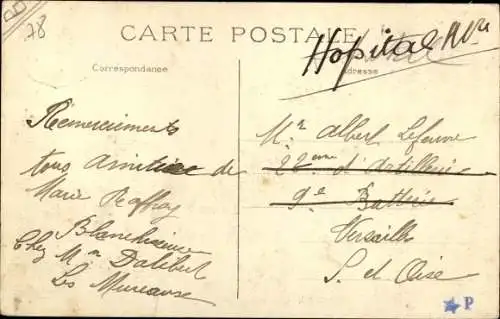 78
CARTE POSTALE
Hopital Mre
Correspondance
Adresse
Remerciements
tous amitiés de
Marie Raffray
Blanchisseuse
Chez Mme Dalibert
Les Mureaux
Mr Albert Lefeuvre
22eme d'Artillerie
9e Batterie
Versailles
S. et Oise
P